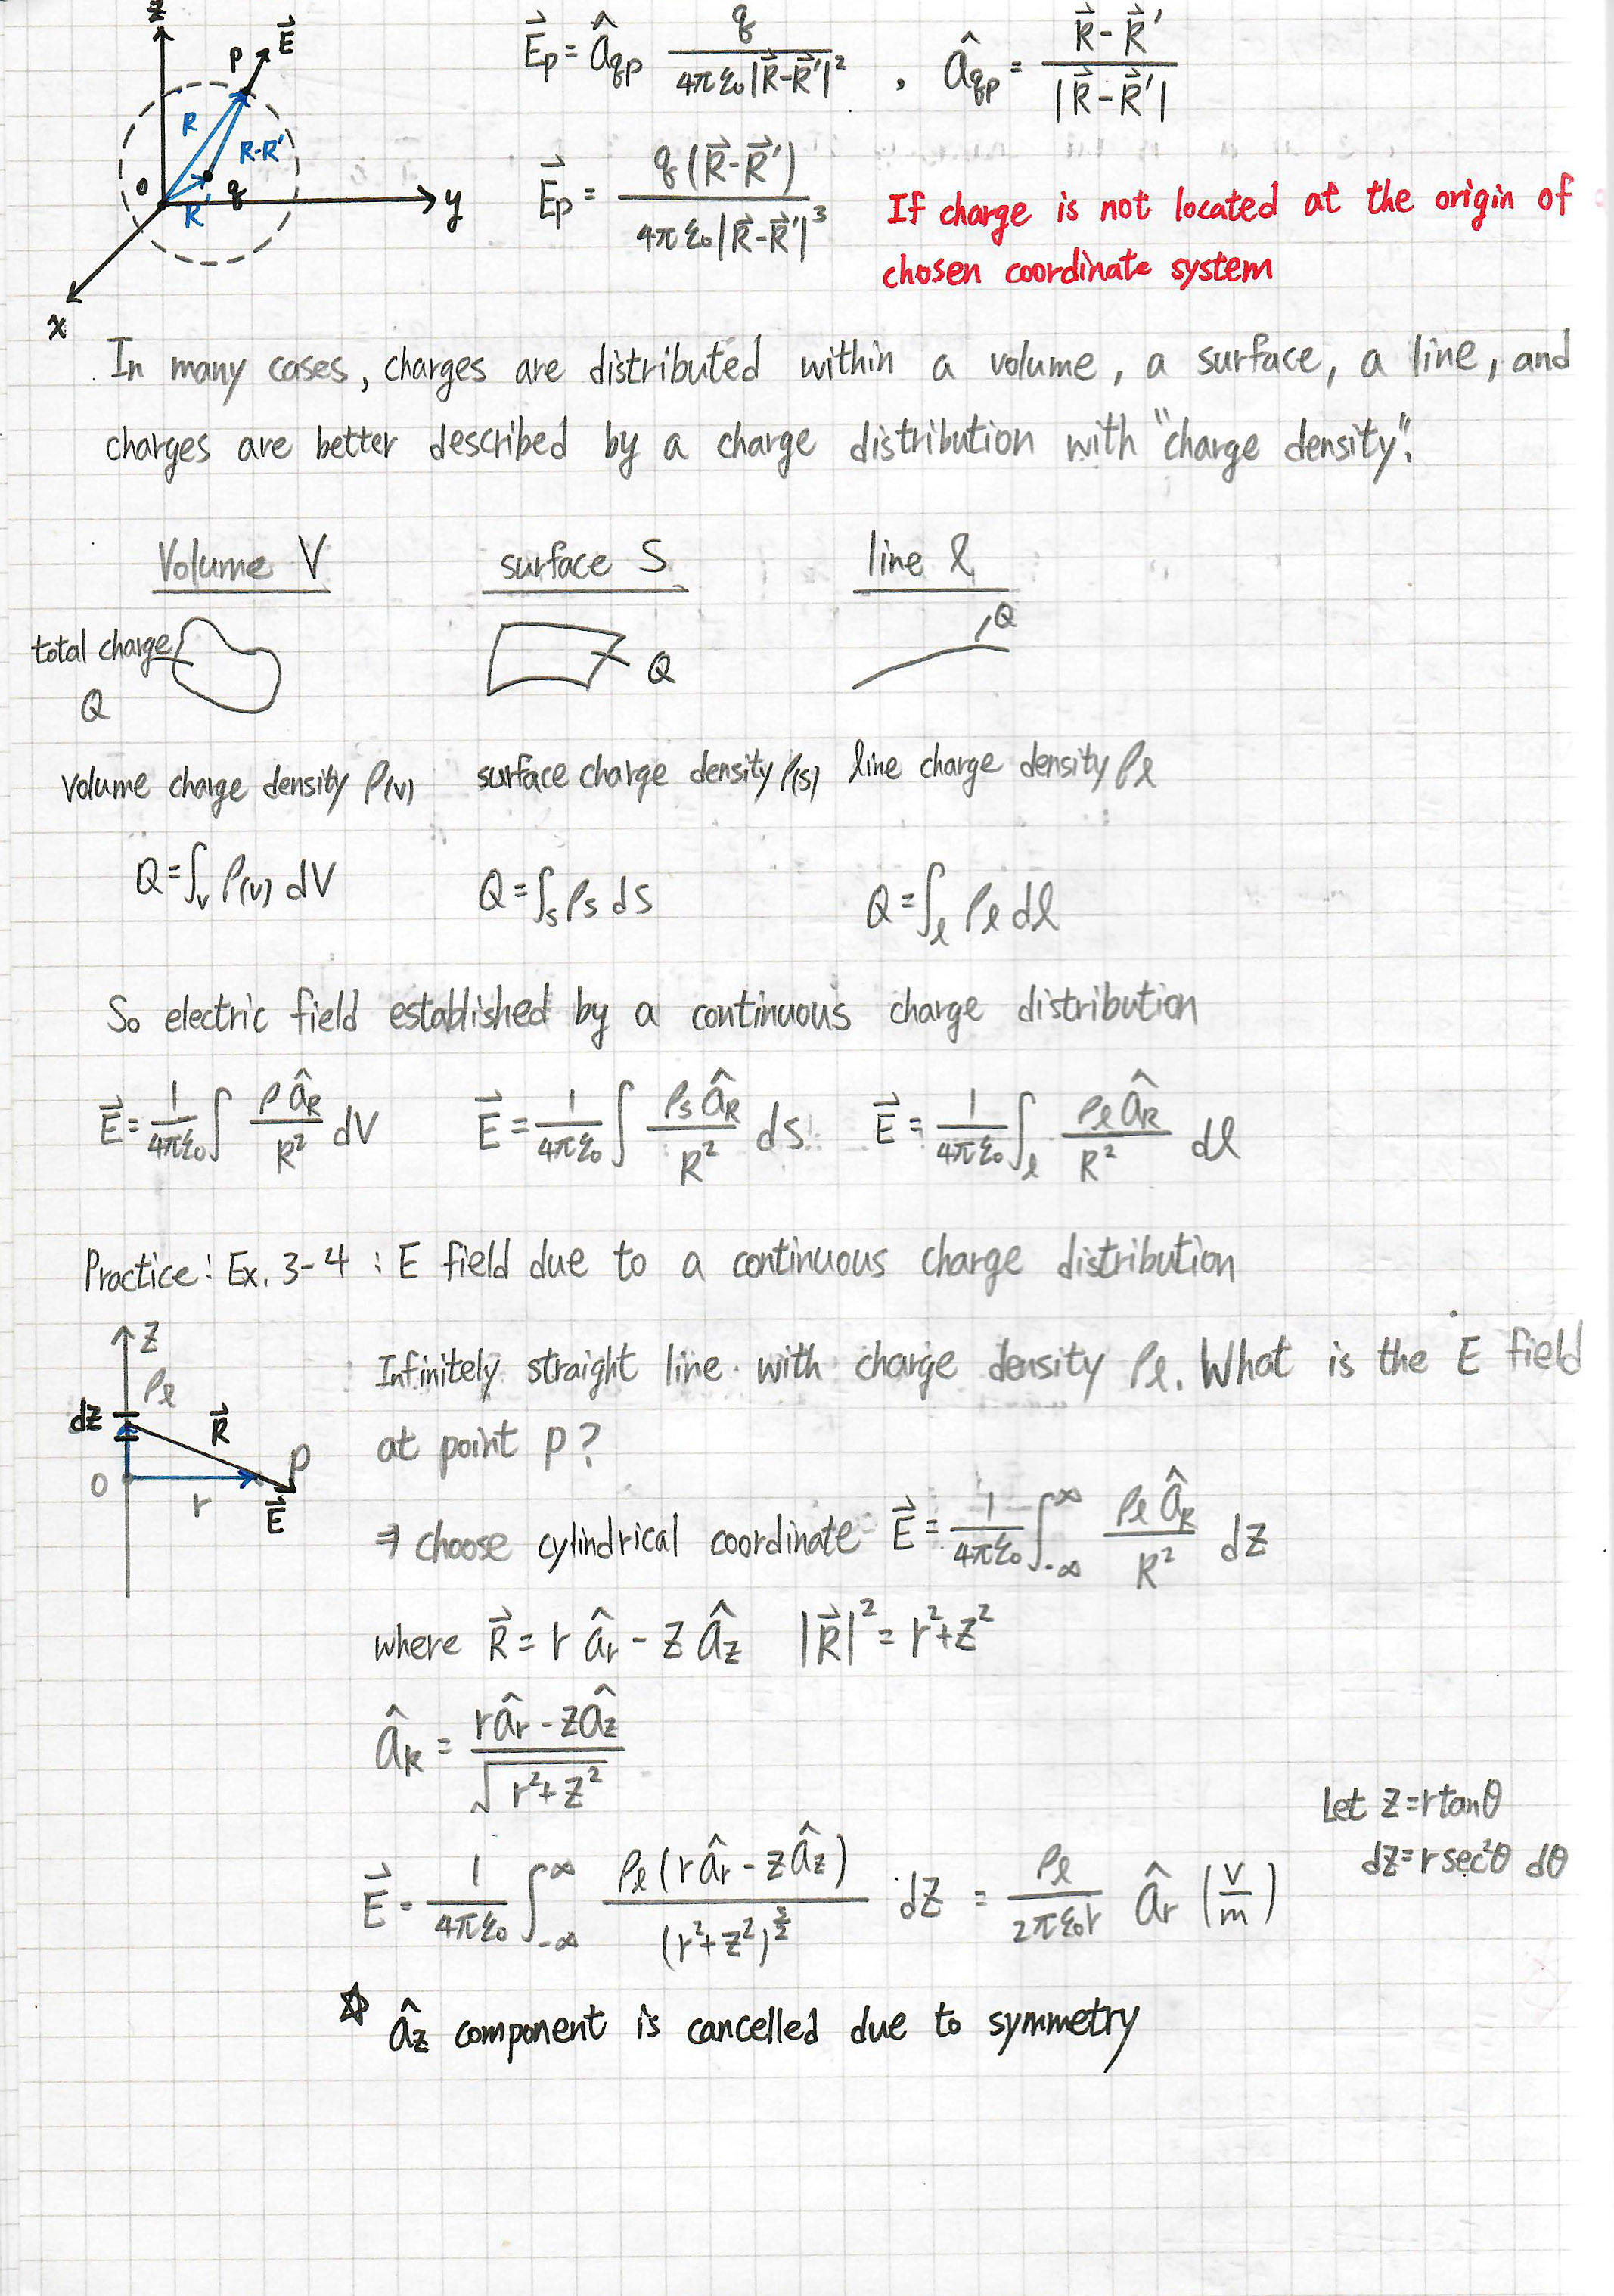 z
P E⃗
R
R-R'
O R' q
y
x
E⃗p = âqp q / 4πε₀|R⃗-R⃗'|² , âqp = R⃗-R⃗' / |R⃗-R⃗'|
E⃗p = q(R⃗-R⃗') / 4πε₀|R⃗-R⃗'|³
If charge is not located at the origin of
chosen coordinate system
In many cases, charges are distributed within a volume, a surface, a line, and
charges are better described by a charge distribution with "charge density".
Volume V surface S line ℓ
total charge
Q
Q
Q
volume charge density ρ(v) surface charge density ρ(s) line charge density ρℓ
Q=∫v ρ(v) dV Q=∫s ρs ds Q=∫ℓ ρℓ dℓ
So electric field established by a continuous charge distribution
E⃗ = 1/4πε₀ ∫ ρ âR / R² dV E⃗ = 1/4πε₀ ∫ ρs âR / R² ds E⃗ = 1/4πε₀ ∫ℓ ρℓ âR / R² dℓ
Practice: Ex. 3-4 : E field due to a continuous charge distribution
z
ρℓ
dz R⃗
P
O
r E⃗
Infinitely straight line with charge density ρℓ. What is the E field
at point P?
⇒ choose cylindrical coordinate E⃗ = 1/4πε₀ ∫-∞^∞ ρℓ âR / R² dz
where R⃗ = r âr - z âz |R⃗|² = r²+z²
âR = râr - zâz / √r²+z²
Let z=rtanθ
dz=rsec²θ dθ
E⃗ = 1/4πε₀ ∫-∞^∞ ρℓ(râr - zâz) / (r²+z²)^3/2 dz = ρℓ / 2πε₀r âr (V/m)
☆ âz component is cancelled due to symmetry